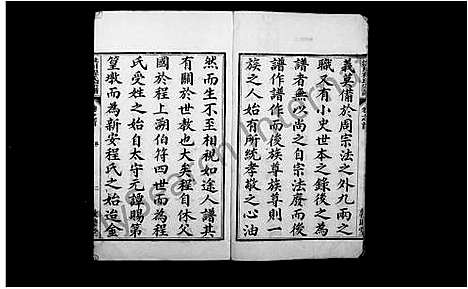 義莫備於周宗法之外九兩之
職又有小史世本之錄後之為
譜者無以尚之自宗法廢而後
譜作譜作而後族尊族尊則一
族之人始有所統孝敬之心油
然而生不至相視如途人譜其
有關於世教也大矣程自休父
國於程上溯伯符四世而為程
氏受姓之始自太守元譚賜第
篁墩而為新安程氏之始迨金